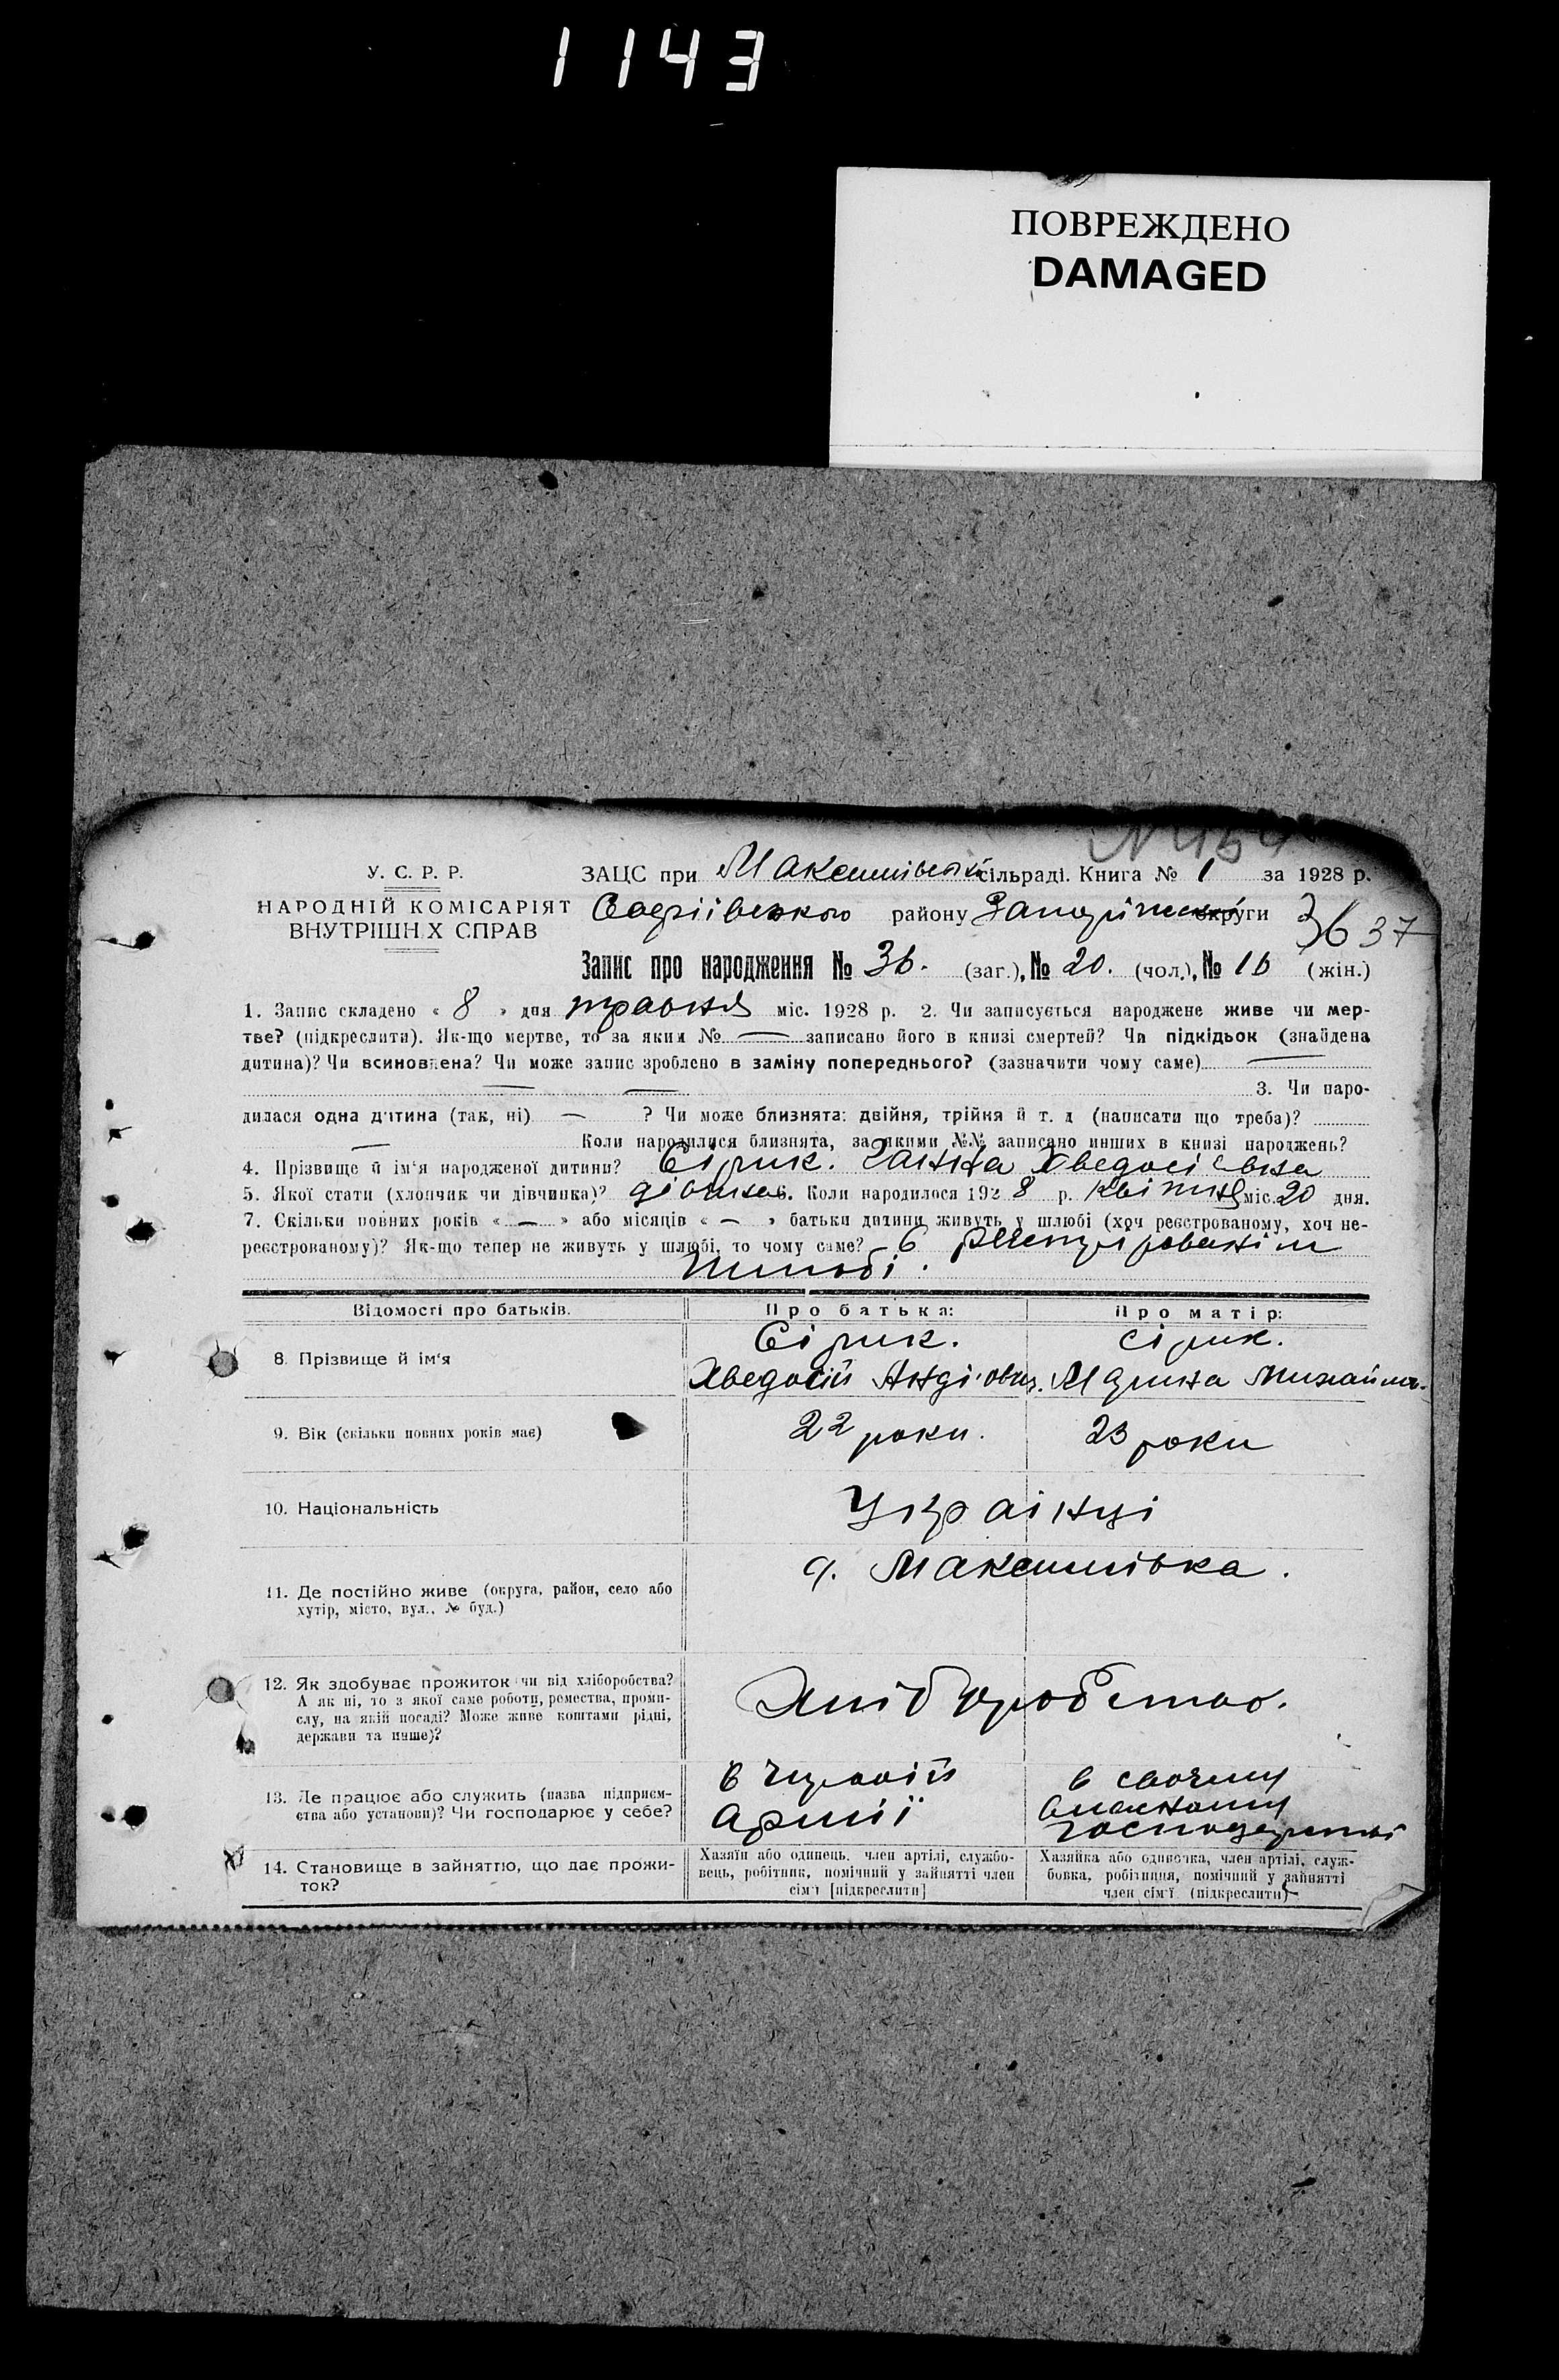 1143
ПОВРЕЖДЕНО
DAMAGED
У. С. Р. Р.
НАРОДНІЙ КОМІСАРІЯТ
ВНУТРІШН Х СПРАВ
ЗАЦС при сільраді. Книга № 1 за 1928 р.
району округи 36 37
Запис про народження № 36. (заг.), № 20. (чол.), № 16 (жін.)
1. Запис складено « 8 » дня травня міс. 1928 р. 2. Чи записується народжене живе чи мер-
тве? (підкреслити). Як-що мертве, то за яким № — записано його в книзі смертей? Чи підкідьок (знайдена
дитина)? Чи всиновлена? Чи може запис зроблено в заміну попереднього? (зазначити чому саме) —
— — 3. Чи наро-
дилася одна дитина (так, ні) — ? Чи може близнята: двійня, трійня й т. д (написати що треба)?
— Коли народилися близнята, за якими №№ записано инших в книзі народжень?
4. Прізвище й ім'я народженої дитини? Сірик. Ганна Хведосіївна
5. Якої стати (хлопчик чи дівчинка)? дівчина 6. Коли народилося 192 8 р. квітня міс. 20 дня.
7. Скільки повних років « — » або місяців « — » батьки дитини живуть у шлюбі (хоч реєстрованому, хоч не-
реєстрованому)? Як-що тепер не живуть у шлюбі, то чому саме? в
шлюбі.
Відомості про батьків. Про батька: Про матір:
8. Прізвище й ім'я Сірик. Сірик.
Хведосій Марина
9. Вік (скільки повних років має) 22 роки. 23 роки
10. Національність Українці
11. Де постійно живе (округа, район, село або
хутір, місто, вул., № буд.)
12. Як здобуває прожиток чи від хліборобства?
А як ні, то з якої саме роботи, ремества, проми-
слу, на якій посаді? Може живе коштами рідні,
держави та инше)?
Хліборобство.
13. Де працює або служить (назва підприєм-
ства або установи)? Чи господарює у себе?
в Червоній
армії
в своєму
власному
господарстві
14. Становище в зайняттю, що дає прожи-
ток?
Хазяїн або одинець, член артілі, службо-
вець, робітник, помічний у зайнятті член
сім'ї [підкреслити]
Хазяйка або одиночка, член артілі, служ-
бовка, робітниця, помічний у зайнятті
член сім'ї (підкреслити)